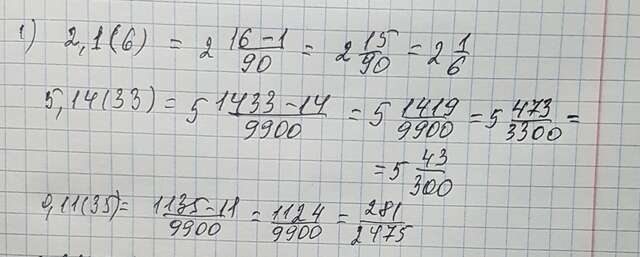 1) 2,1(6) = 2 16-1/90 = 2 15/90 = 2 1/6
5,14(33) = 5 1433-14/9900 = 5 1419/9900 = 5 473/3300 =
= 5 43/300
0,11(35) = 1135-11/9900 = 1124/9900 = 281/2475